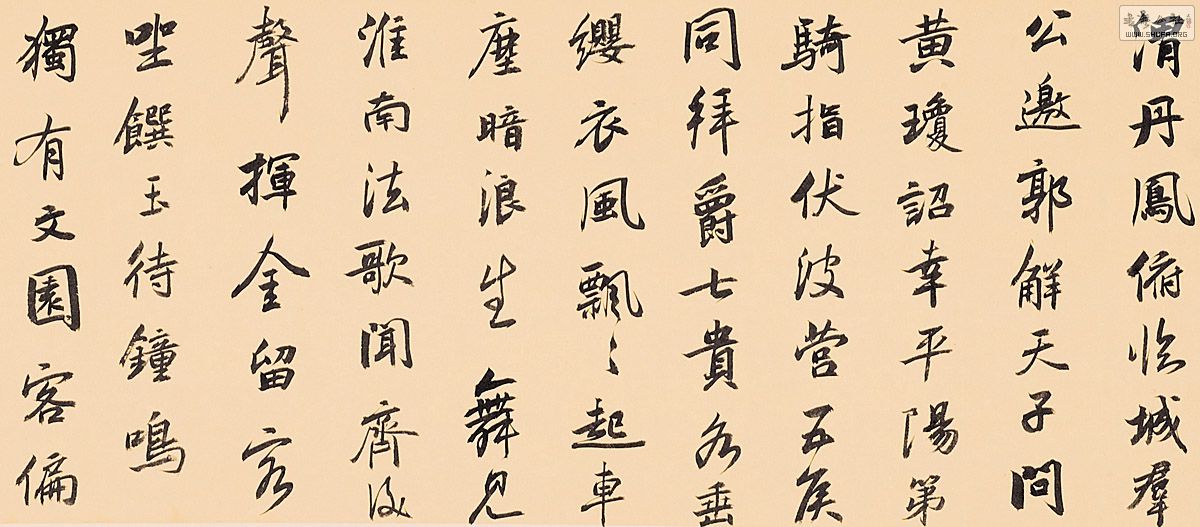 渭丹鳳俯臨城羣
公邀郭解天子問
黄瓊詔幸平陽第
騎指伏波營五侯
同拜爵七貴各垂
纓衣風飄〻起車
塵暗浪生舞見
淮南法歌聞齊後
聲揮金留客
坐饌玉待鐘鳴
獨有文園客偏
WWW.SHUFA.ORG